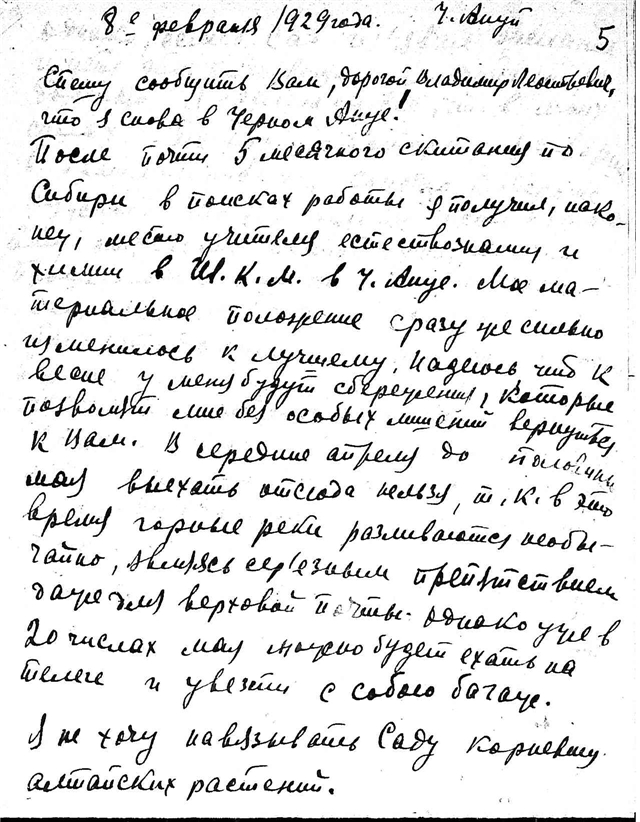 8е февраля 1929 года. Ч. Ануй
5
Спешу сообщить Вам, дорогой Владимир Леонтьевич,
что я снова в Черном Ануе!
После почти 5 месячного скитания по
Сибири в поисках работы я получил, нако-
нец, место учителя естествознания и
химии в Ш.К.М. в Ч. Ануе. Мое ма-
териальное положение сразу же сильно
изменилось к лучшему. Надеюсь что к
весне у меня будут сбережения, которые
позволят мне без особых лишений вернуться
к Вам. В середине апреля до половины
мая выехать отсюда нельзя, т.к. в это
время горные реки разливаются необы-
чайно, являясь сер'езным препятствием
даже для верховой почты. Однако уже в
20 числах мая можно будет ехать на
телеге и увезти с собою багаж.
Я не хочу навязывать Саду корневищ
алтайских растений.